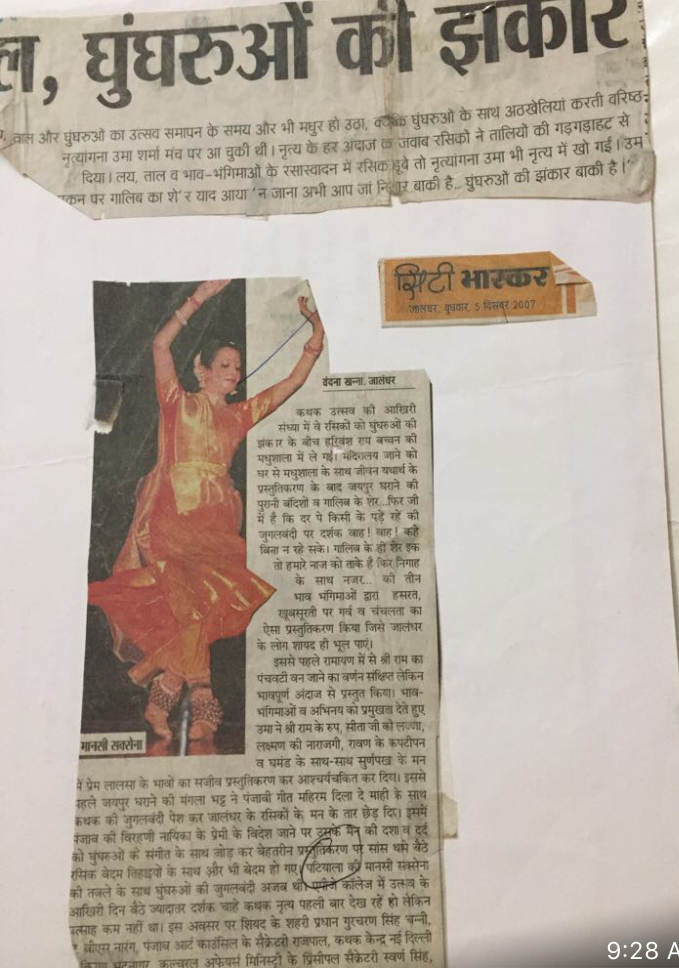 ल, घुंघरुओं की झंकार
ताल और घुंघरुओं का उत्सव समापन के समय और भी मधुर हो उठा, घुंघरुओं के साथ अठखेलियां करती वरिष्ठ
नृत्यांगना उमा शर्मा मंच पर आ चुकी थी। नृत्य के हर अंदाज का जवाब रसिकों ने तालियों की गड़गड़ाहट से
दिया। लय, ताल व भाव-भंगिमाओं के रसास्वादन में रसिक डूबे तो नृत्यांगना उमा भी नृत्य में खो गई। उम
पर गालिब का शे'र याद आया 'न जाना अभी आप जां बाकी है... घुंघरुओं की झंकार बाकी है।'
सिटी भास्कर
जालंधर, बुधवार, 5 दिसंबर 2007
वंदना खन्ना, जालंधर
कथक उत्सव की आखिरी
संध्या में वे रसिकों को घुंघरुओं की
झंकार के बीच हरिवंश राय बच्चन की
मधुशाला में ले गई। मदिरालय जाने को
घर से मधुशाला के साथ जीवन यथार्थ के
प्रस्तुतिकरण के बाद जयपुर घराने की
पुरानी बंदिशों व गालिब के शेर...फिर जी
में है कि दर पे किसी के पड़े रहें की
जुगलबंदी पर दर्शक वाह! वाह! कहे
बिना न रहे सके। गालिब के ही शेर इक
तो हमारे नाज को ताके है फिर निगाह
के साथ नजर... की तीन
भाव भंगिमाओं द्वारा हसरत,
खूबसूरती पर गर्व व चंचलता का
ऐसा प्रस्तुतिकरण किया जिसे जालंधर
के लोग शायद ही भूल पाएं।
इससे पहले रामायण में से श्री राम का
पंचवटी वन जाने का वर्णन संक्षिप्त लेकिन
भावपूर्ण अंदाज से प्रस्तुत किया। भाव-
भंगिमाओं व अभिनय को प्रमुखता देते हुए
उमा ने श्री राम के रुप, सीता जी की लज्जा,
लक्ष्मण की नाराजगी, रावण के कपटीपन
व घमंड के साथ-साथ सुर्णपखा के मन
में प्रेम लालसा के भावों का सजीव प्रस्तुतिकरण कर आश्चर्यचकित कर दिया। इससे
पहले जयपुर घराने की मंगला भट्ट ने पंजाबी गीत महिरम दिला दे माही के साथ
कथक की जुगलबंदी पेश कर जालंधर के रसिकों के मन के तार छेड़ दिए। इसमें
पंजाब की विरहणी नायिका के प्रेमी के विदेश जाने पर उसके मन की दशा व दर्द
को घुंघरुओं के संगीत के साथ जोड़ कर बेहतरीन प्रस्तुतिकरण पर सांस थामे बैठे
रसिक बेदम तिहाइयों के साथ और भी बेदम हो गए। पटियाला की मानसी सक्सेना
की तबले के साथ घुंघरुओं की जुगलबंदी अजब थी। एपीजे कॉलेज में उत्सव के
आखिरी दिन बैठे ज्यादातर दर्शक चाहे कथक नृत्य पहली बार देख रहें हो लेकिन
उत्साह कम नहीं था। इस अवसर पर शियद के शहरी प्रधान गुरचरण सिंह चन्नी,
बीएस नारंग, पंजाब आर्ट काउंसिल के सैक्रेटरी राजपाल, कथक केन्द्र नई दिल्ली
भटनागर, कल्चरल अफेयर्स मिनिस्ट्री के प्रिंसीपल सैक्रेटरी स्वर्ण सिंह,
मानसी सक्सेना
9:28 A